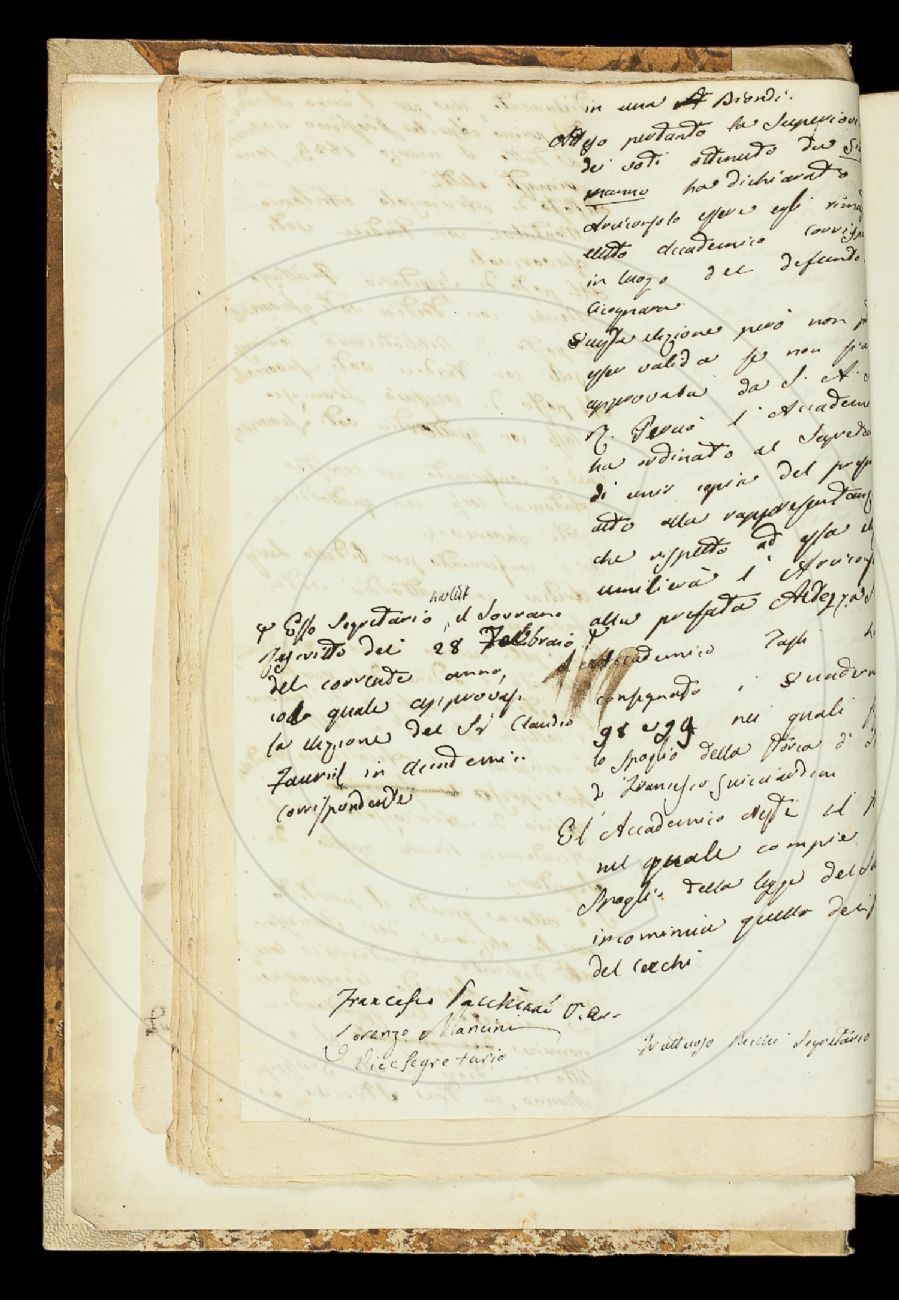 in una Biondi.
pertanto la Superiori
dei voti ottenuto da
manno ha dichiarato
Arciconsolo essere egli
eletto Accademico corrisp
in luogo del defunto
Cicognara
Questa elezione però non p
esser valida se non sia
approvata da S. A.
R. Perciò l'Accadem
ha ordinato al Segreta
di unir copia del pres
atto alla rappresentanz
che rispetto ad essa el
umilierà l'Arcicons
alla prefata Altezza S
φ
Accademico
consegnato i Quadern
98 e 99 nei quali
lo Spoglio della Storia d'
di Francesco Guicciardini
E l'Accademico il
nel quale compie
Spoglio della legge del
incomincia quello
del Cecchi
ha letto
φ Esso Segretario, il Sovrano
Rescritto dei 28 Febbraio
del corrente anno,
col quale approvasi
la elezione del Sr Claudio
Fauriel in Accademico
corrispondente
Francesco Pacchiani V. Arc.
Lorenzo Mancini
Vice Segretario
Fruttuoso Becchi Segretario